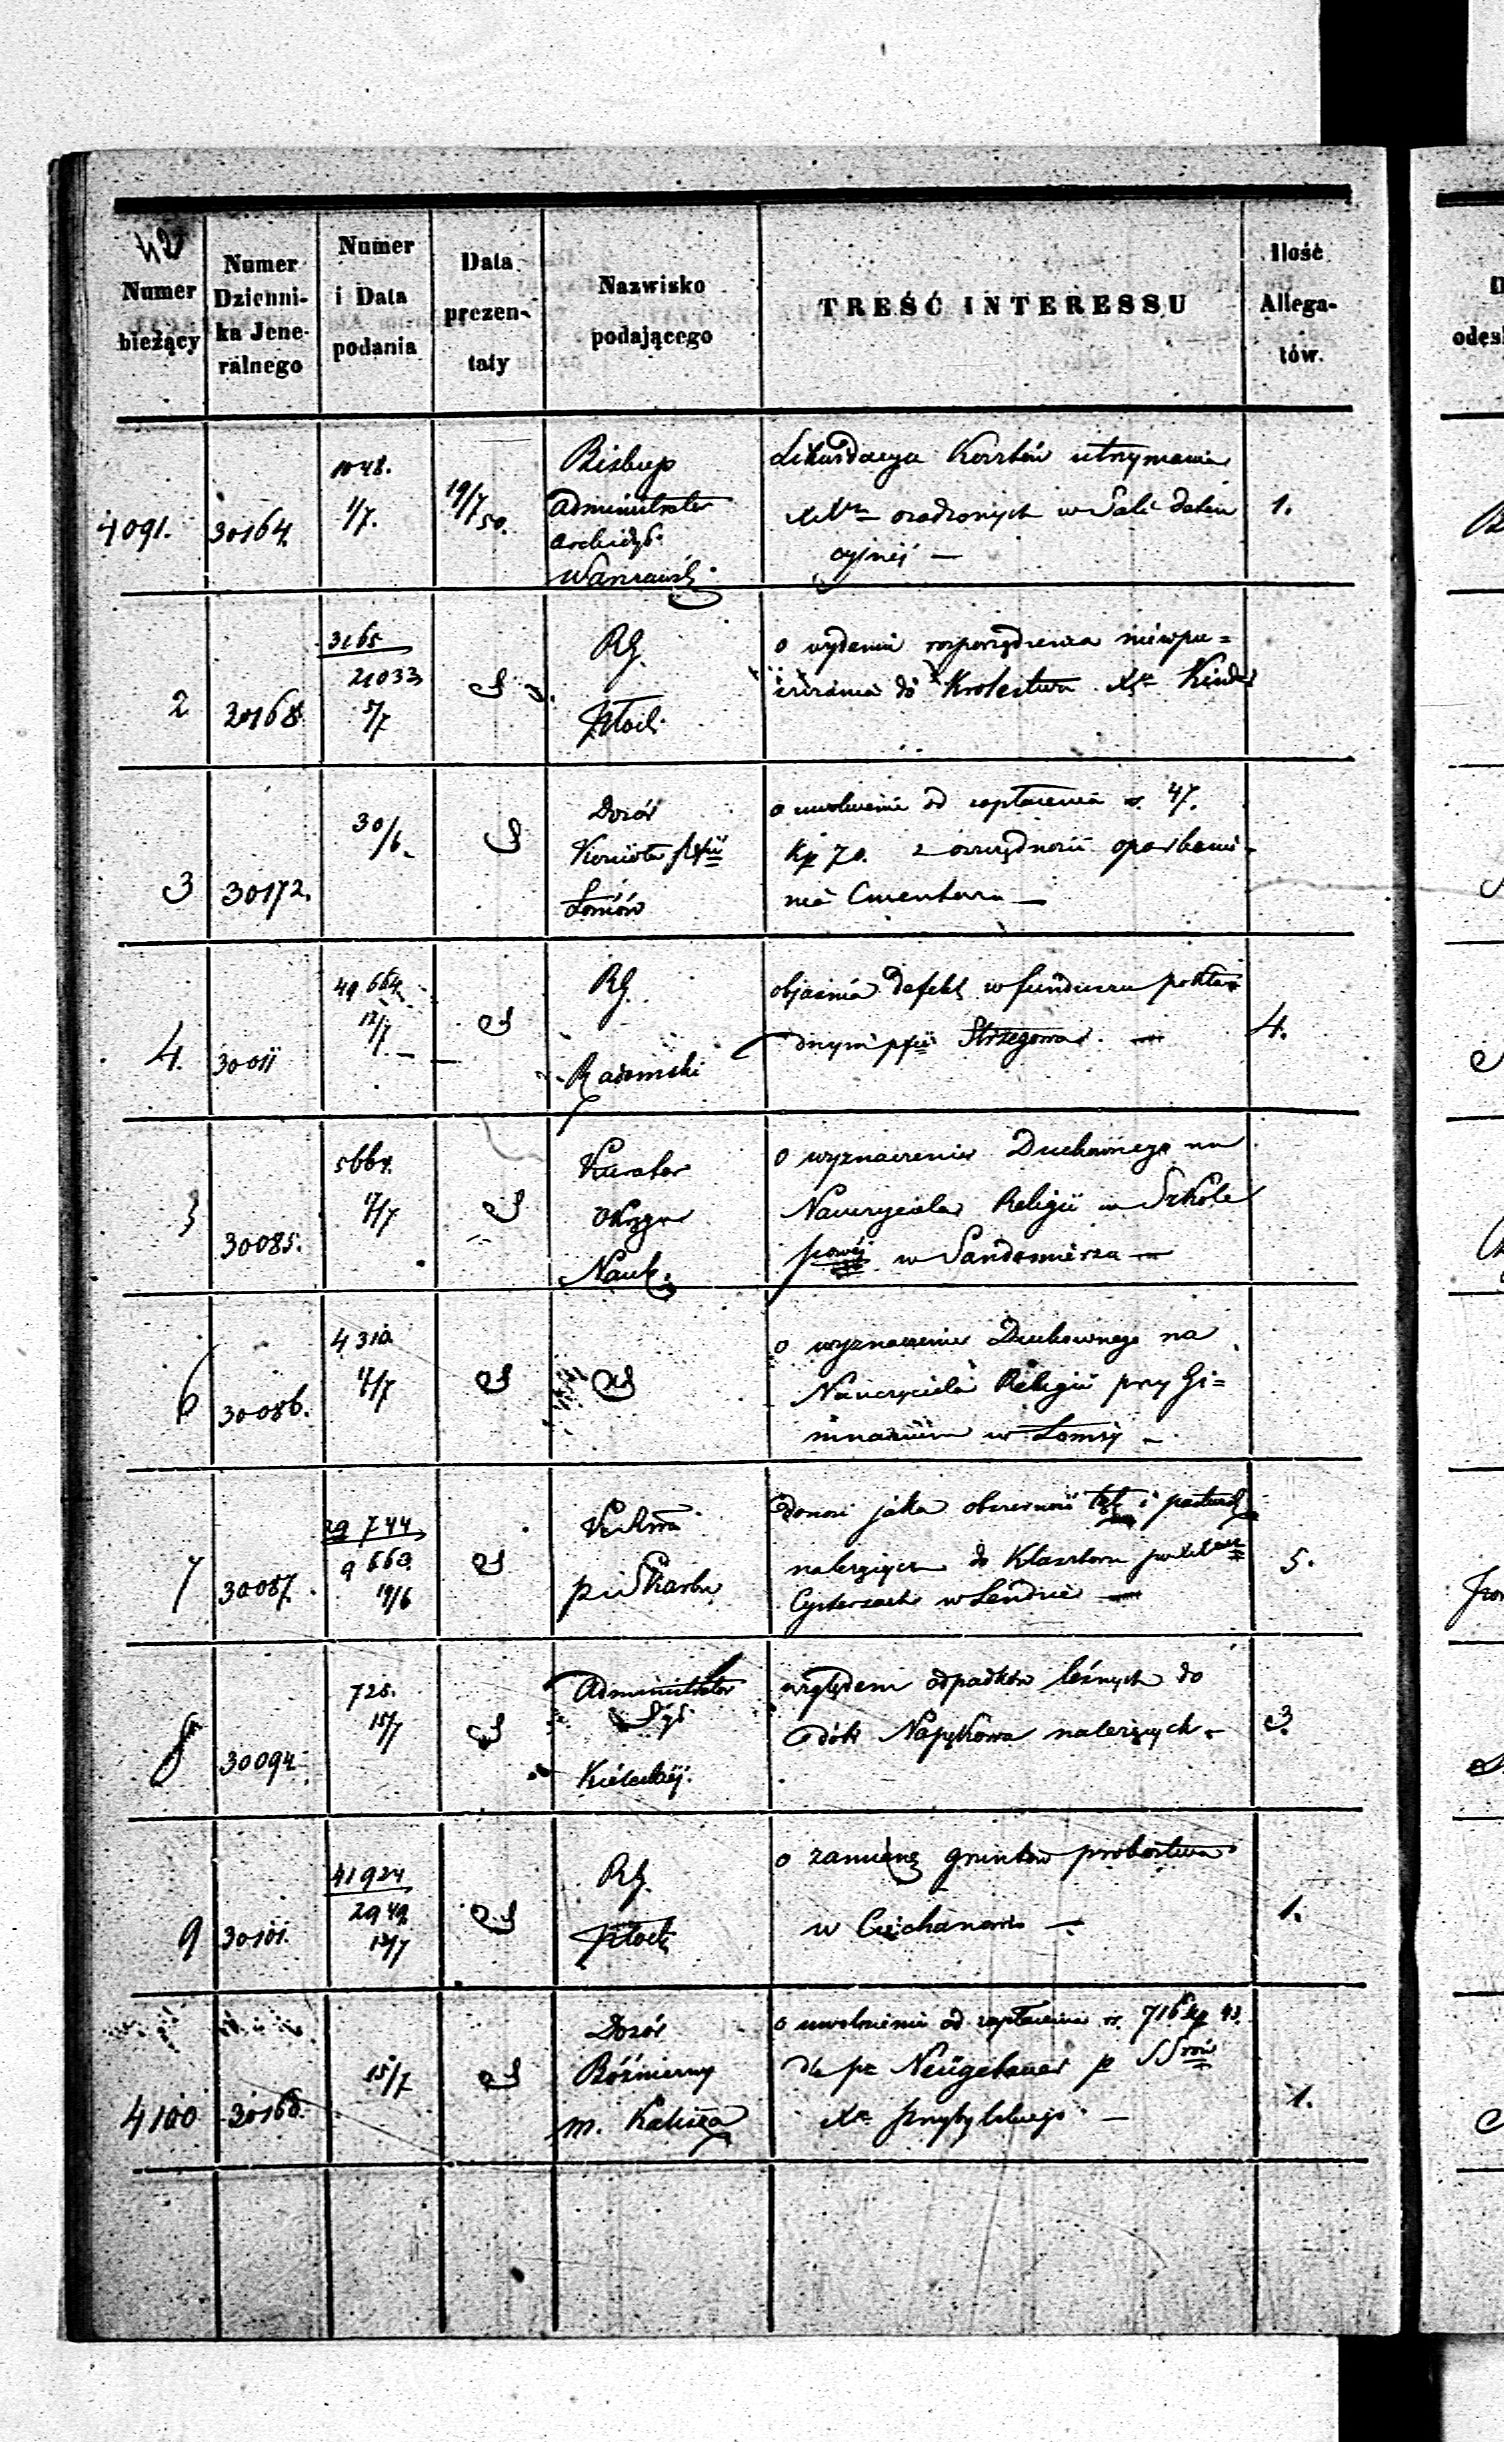 42
Numer bieżący
Numer Dzienni-ka Jene-ralnego
Numer i Data podania
Data prezen-taty
Nazwisko podającego
TREŚĆ INTERESSU
Ilość Allega-tów.
4091. 30164. 1048. 1/7. 19/7 50.
Biskup
Administrator
Archidyec.
Warszawski
Likwidacya Kosztów utrzymania
osadzonych w Sali deten
cyjnej —
1.
2 30168 3165 21033 5/7
RG.
Płock.
o wydanie rozporządzenia niewpu=
szczania do Krolestwa Xa
3 30172. 30/6.
Dozór
Kościoła pfii
Łoniów
o uwolnienie od zapłacenia rs. 47.
kp 70. z oszczędności oparkani-
nia Cmentarza —
4. 30011 49664 12/7. —
RG.
Radomski
objaśnia defekt w funduszu pokła=
dnym pfii Strzegowa. —
4.
5 30085. 17/7
Kurator
Okręgu
Nauk.
o wyznaczenie Duchownego na
Nauczyciela Religii w Szkole
powej w Sandomierzu —
6 30086. 4310 17/7
o wyznaczenie Duchownego na
Nauczyciela Religii przy Gi=
mnazium w Łomży —
7 30087. 29744 9660 19/6
piSkarbu
donosi jaka obszerność łąk i pastwisk
należących do Klasztoru
Cystersach w Lendzie —
5.
8 30094 728. 15/7
Administrator
Dyec.
Kieleckiej.
względem odpadków leśnych do
dóbr Napękowa należących —
3
9 30101. 41924 2949 12/7
RG.
Płock
o zamianę gruntów probostwa
w Ciechanowie —
1.
4100 30160. 15/7
Dozór
Bóżniczny
m. Kalisza
o uwolnienie od zapłacenia rs. 716 kp 43.
dla pa Neügebauer p SSrów
Xa Przybylskiego —
1.